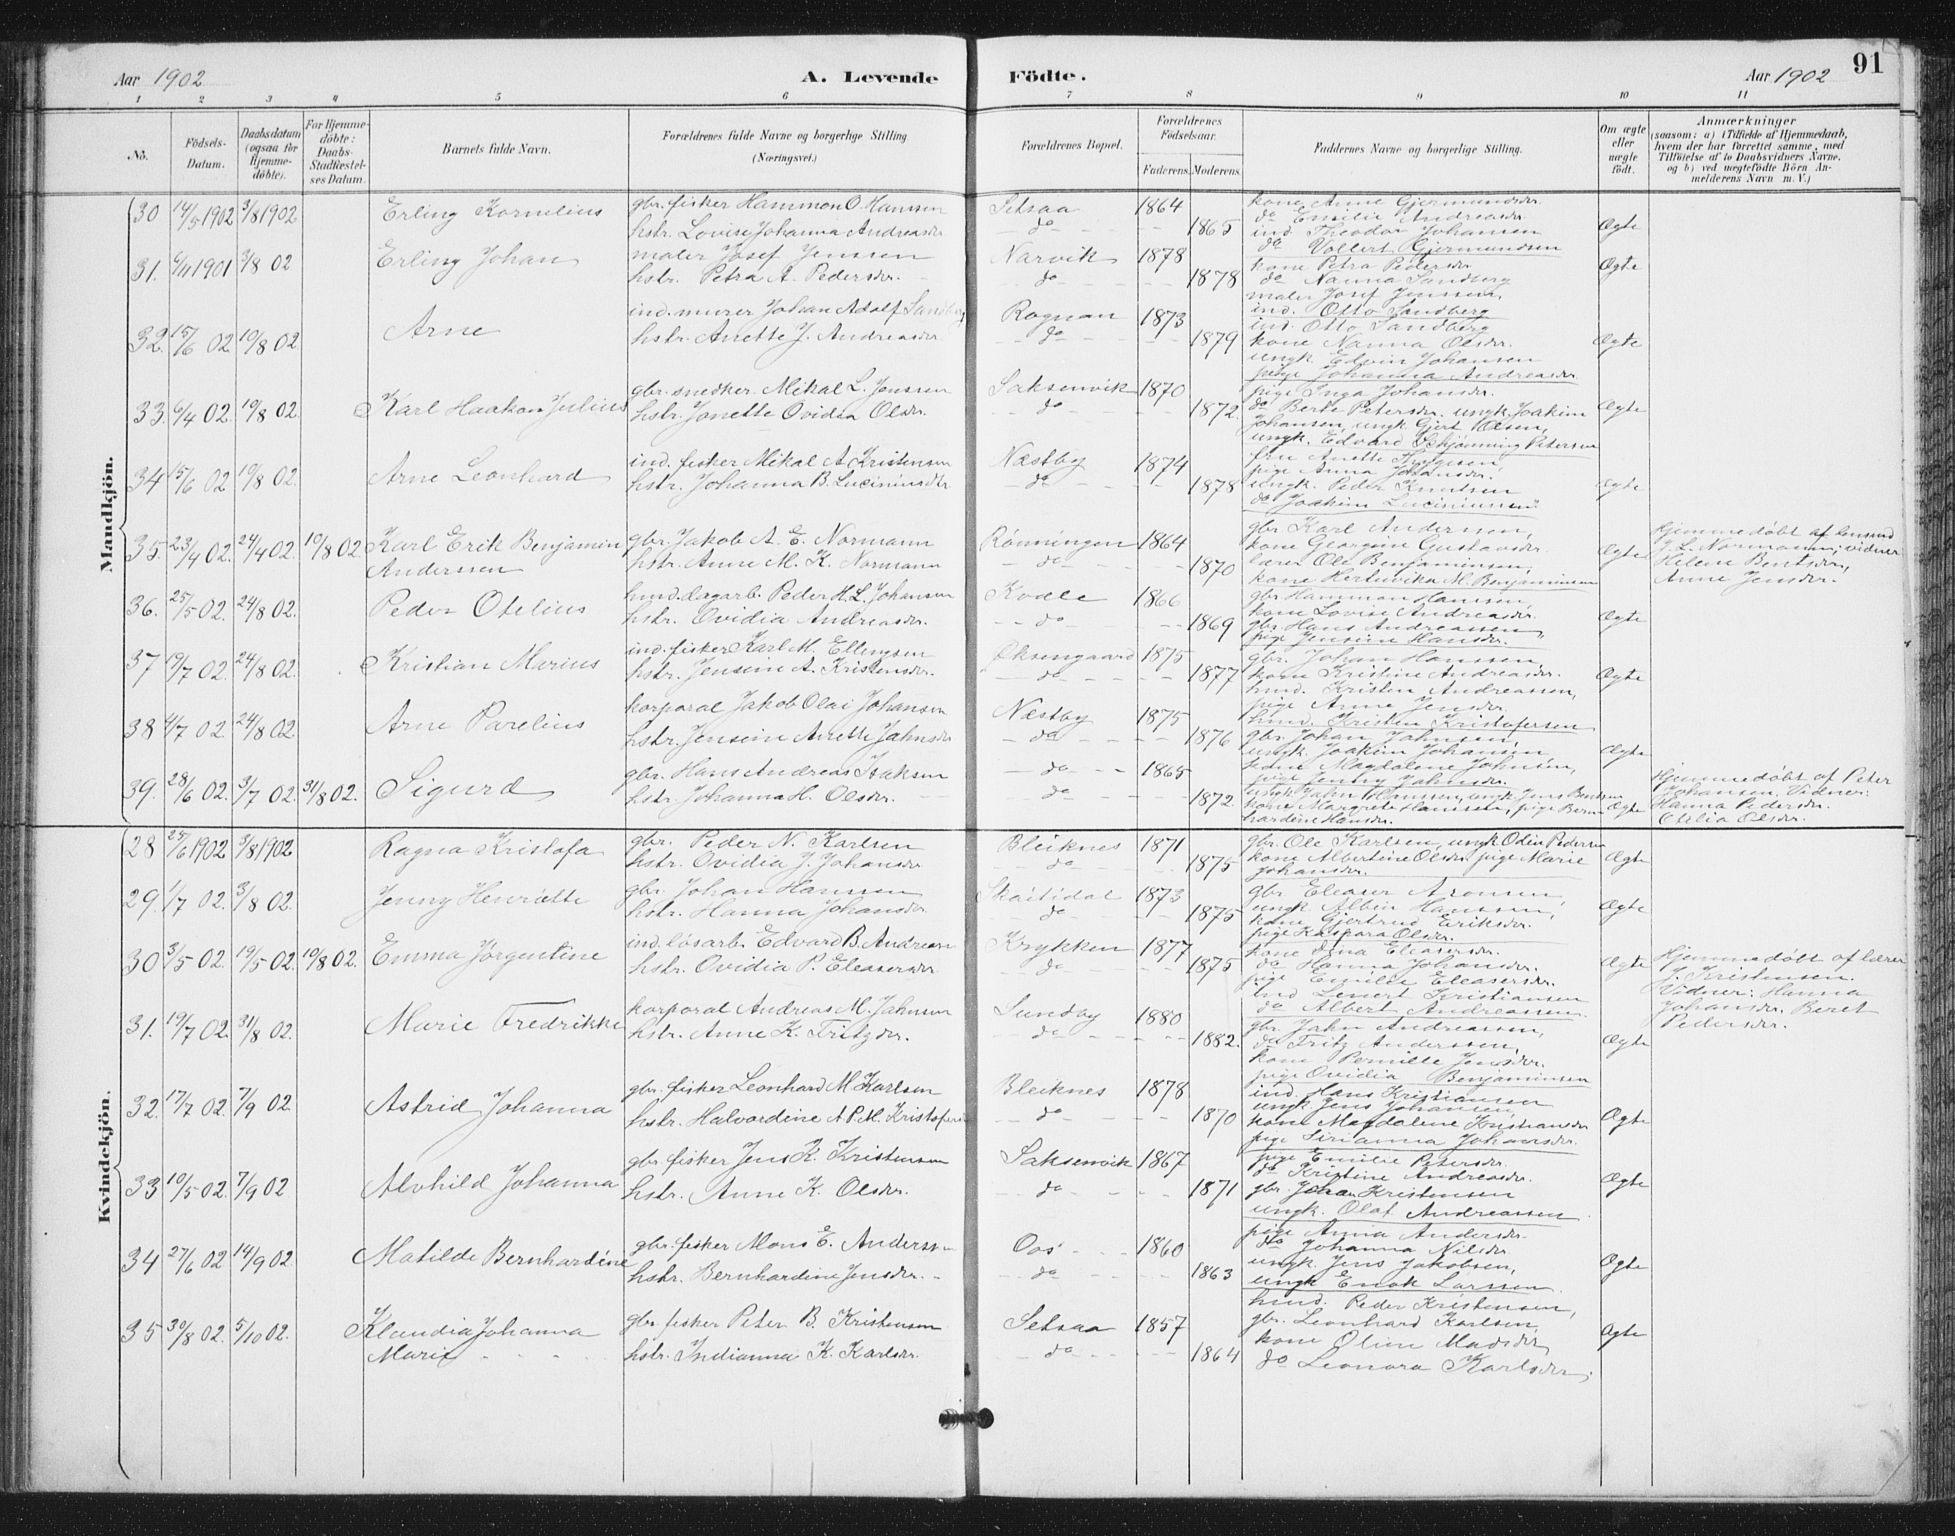 Aar 1902 A. Levende Födte. Aar 1902 91
1 2 3 4 5 6 7 8 9 10 11
No. Födsels-Datum. Daabsdatum (ogsaa for Hjemme-döbte). For Hjemme-döbte: Daabs-Stadfæstel-ses Datum. Barnets fulde Navn. Forældrenes fulde Navne og borgerlige Stilling (Næringsvei.) Forældrenes Bopæl. Forældrenes Födselsaar. Faderens. Moderens. Faddernes Navne og borgerlige Stilling. Om ægte eller uægte födt. Anmærkninger (saasom: a) i Tilfælde af Hjemmedaab, hvem der har forrettet samme, med Tilföielse af to Daabsvidners Navne, og b) ved uegtefödte Börn An-melderens Navn m. V.)
Mandkjön.
30 14/5 1902 3/8 1902 Erling Kornelius gbr. fisker Hammon O. Hansen Setsaa 1864 kone Anne Gjermundsdr.
hstr. Lovise Johanna Andreasdr do 1865 do Emilie Andreasdr Ægte
ind. Theodor Johansen
do Vollert Gjermundsen
31. 6/11 1901 3/8 02 Erling Johan maler Josef Jenssen Narvik 1878 kone Petra Pedersdr. Ægte
hstr. Petra A. Pedersdr. do 1878 do Nanna Sandberg
maler Josef Jenssen,
ind. Otto Sandberg
32. 15/6 02 10/8 02 Arne ind. murer Johan Adolf Sandberg Rognan 1873 ind. Otto Sandberg
hstr. Anette J. Andreasdr do 1879 kone Nanna Olsdr. Ægte
ungk. Edvin Johansen
pige Johanna Andreasdr
33. 6/4 02 10/8 02. Karl Haakon Julius gbr. snedker Mikal L. Jenssen Saksenvik 1870 pige Inga Johansdr.
hstr. Jonette Ovidia Olsdr. do 1872. do Berte Petersdr. ungk. Joakim Ægte
Johansen, ungk. Gjert Olsen,
ungk. Edvard Schjønning Petersen
34 15/6 02 10/8 02. Arne Leonhard ind. fisker Mikal A. Kristensen Næstby 1874 fru Anette
hstr. Johanna B. Luciniusdtr. do 1878 pige Anna Ægte
ungk. Peder Knutsen
do Joakim Luciniussen
35. 23/4 02. 24/4 02. 10/8 02 Karl Erik Benjamin gbr. Jakob A. E. Normann Rönningen 1864 gbr Karl Andersen, Hjemmedöbt af lensmd
Anderssen hstr. Anne M. K. Normann do 1870 kone Georgine Gustavsdr. Ægte J. L. Normann, vidner
lærer Ole Benjaminsen, Helene Bentsdr.,
kone Hertuvika M. Benjaminsen Anne Jensdr.
36. 25/5 02. 24/8 02. Peder Otelius hmd. dagarb. Peder H. L. Johansen Kvæle 1866 gbr Hammon Hansen,
hstr. Ovidia Andreasdr. do 1869 kone Lovise Andreasdr. Ægte
gbr Hans Andreassen,
pige Jensine Hansdr.
37 19/7 02. 24/8 02. Kristian Marius ind. fisker Karl M. Ellingsen Øksengaard 1875 gbr. Johan Hanssen,
hstr. Jensein A. Kristensdr. do 1877 kone Kristine Andreasdr. Ægte
hmd. Kristen Andreassen,
pige Anne Jensdr.
38 4/7 02 24/8 02. Arne Parelius korporal Jakob Olai Johansen Næstby 1875 hmd. Kristen Kristofersen
hstr. Jensine Anette Jahnsdr do 1876 gbr. Johan Jahnsen, Ægte
ungk. Joakim Johansen,
kone Magdalene Johnsen,
pige Jenny Jahnsdr.
39. 28/6 02. 3/7 02. 31/8 02. Sigurd gbr. Hans Andreas Isaksen do 1865 ungk. Jahn Hanssen, ungk. Jens Bentsen Hjemmedöbt af Peter
hstr. Johanna H. Olsdr. do 1872. kone Margrete Hanssen, pige Bern- Ægte Johansen. Vidner:
hardine Hansdr. Hanna Pedersdr.
Olsdr.
Kvindekjön.
28 25/6 1902 3/8 1902 Ragna Kristofa gbr. Peder N. Karlsen Bleiknes 1871 gbr. Ole Karlsen, ungk. Odin Pedersen
hstr. Ovidia J. Johansdr do 1875 kone Albertine Olsdr, pige Marie Ægte
Johansdr.
29. 1/7 02. 3/8 02. Jenny Henriette gbr. Johan Hanssen Skaitidal 1873 gbr. Eleaser Aronsen,
hstr. Hanna Johansdr. do 1875 ungk. Albin Hanssen, Ægte
kone Gjertrud Eriksdr.
pige Kaspara Olsdr.
30 3/5 02. 19/5 02. 10/8 02. Emma Jørgentine ind. løsarb. Edvard B. Andreasen Krykken 1877 kone Ina Eleasersdr. Hjemmedöbt af lærer
hstr. Ovidia P. Eleasersdr. do 1875 do Hanna Johansdr. Ægte J. Kristensen.
pige Emilie Eleasersdr. Vidner: Hanna
ind Lenert Kristiansen Johansdr. Beret
do Albert Andreassen. Pedersdr.
31. 19/7 02. 31/8 02. Marie Fredrikke korporal Andreas M. Jahnsen Sundby 1880 gbr. Jahn Andreassen,
hstr. Anne K. Fritzdr. do 1882. do Fritz Anderssen, Ægte
kone Pernille Jensdr.
pige Ovidia Benjaminsen
32. 17/7 02. 7/9 02. Astrid Johanna gbr. fisker Leonhard M. Karlsen Bleiknes 1878 ind. Hans Kristiansen
hstr. Halvardine A. P. M. Kristofersdr do 1870 ungk. Jens Johansen, Ægte
kone Magdalene Kristiansdr
pige Sirianna Johansdr.
33 10/5 02. 7/9 02 Alvhild Johanna gbr. fisker Jens K. Kristensen Saksenvik 1867 pige Emilie Petersdr.
hstr. Anne K. Olsdr. do 1871 do Kristine Andreasdr. Ægte
gbr. Johan Kristensen
ungk. Olaf Andreassen
34 27/6 02 14/9 02. Matilde Bernhardine gbr. fisker Mons E. Anderssen Oos 1860 pige Anna Andersdr.
hstr. Bernhardine Jensdr. do 1863 do Johanna Nilsdr Ægte
ungk. Jens Jakobsen,
ungk Enok Larssen.
35 30/8 02. 5/10 02. Klaudia Johanna gbr. fisker Peter B. Kristensen Setsaa 1857 hmd. Peder Kristensen,
Marie hstr. Indianna K. Karlsdr. do 1864 gbr. Leonhard Karlsen, Ægte
kone Oline Madsdr,
do Leonora Karlsdr.